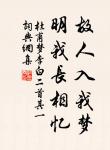 故人入我梦
明我长相忆
杜甫梦李白二首其一
词典网集